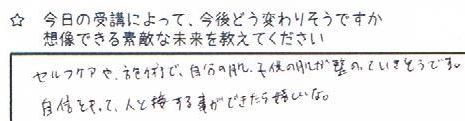 ☆ 今日の受講によって、今後どう変わりそうですか
想像できる素敵な未来を教えてください
セルフケアや、で、自分の肌、子供の肌が整っていきそうです。
自信をもって、人と接する事ができたら嬉しいな。